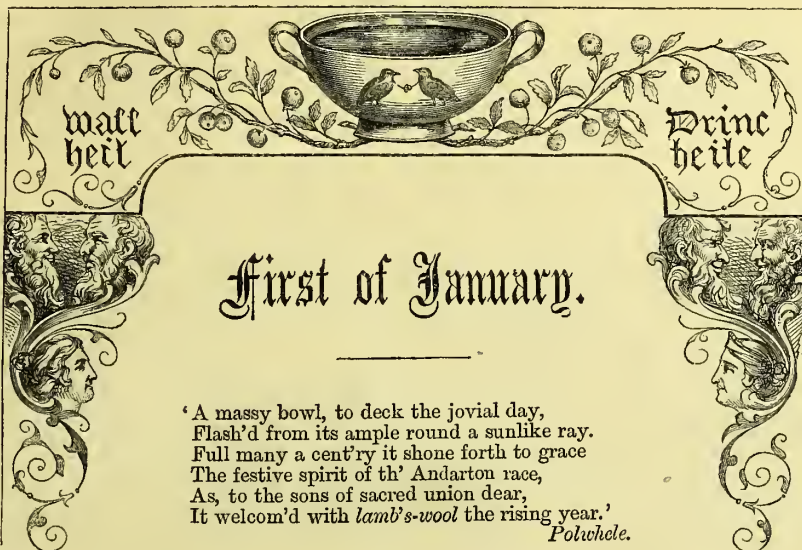 wass
heil
Drinc
heile
First of January.
‘A massy bowl, to deck the jovial day,
Flash'd from its ample round a sunlike ray.
Full many a cent'ry it shone forth to grace
The festive spirit of th' Andarton race,
As, to the sons of sacred union dear,
It welcom'd with lamb's-wool the rising year.’
Polwhele.